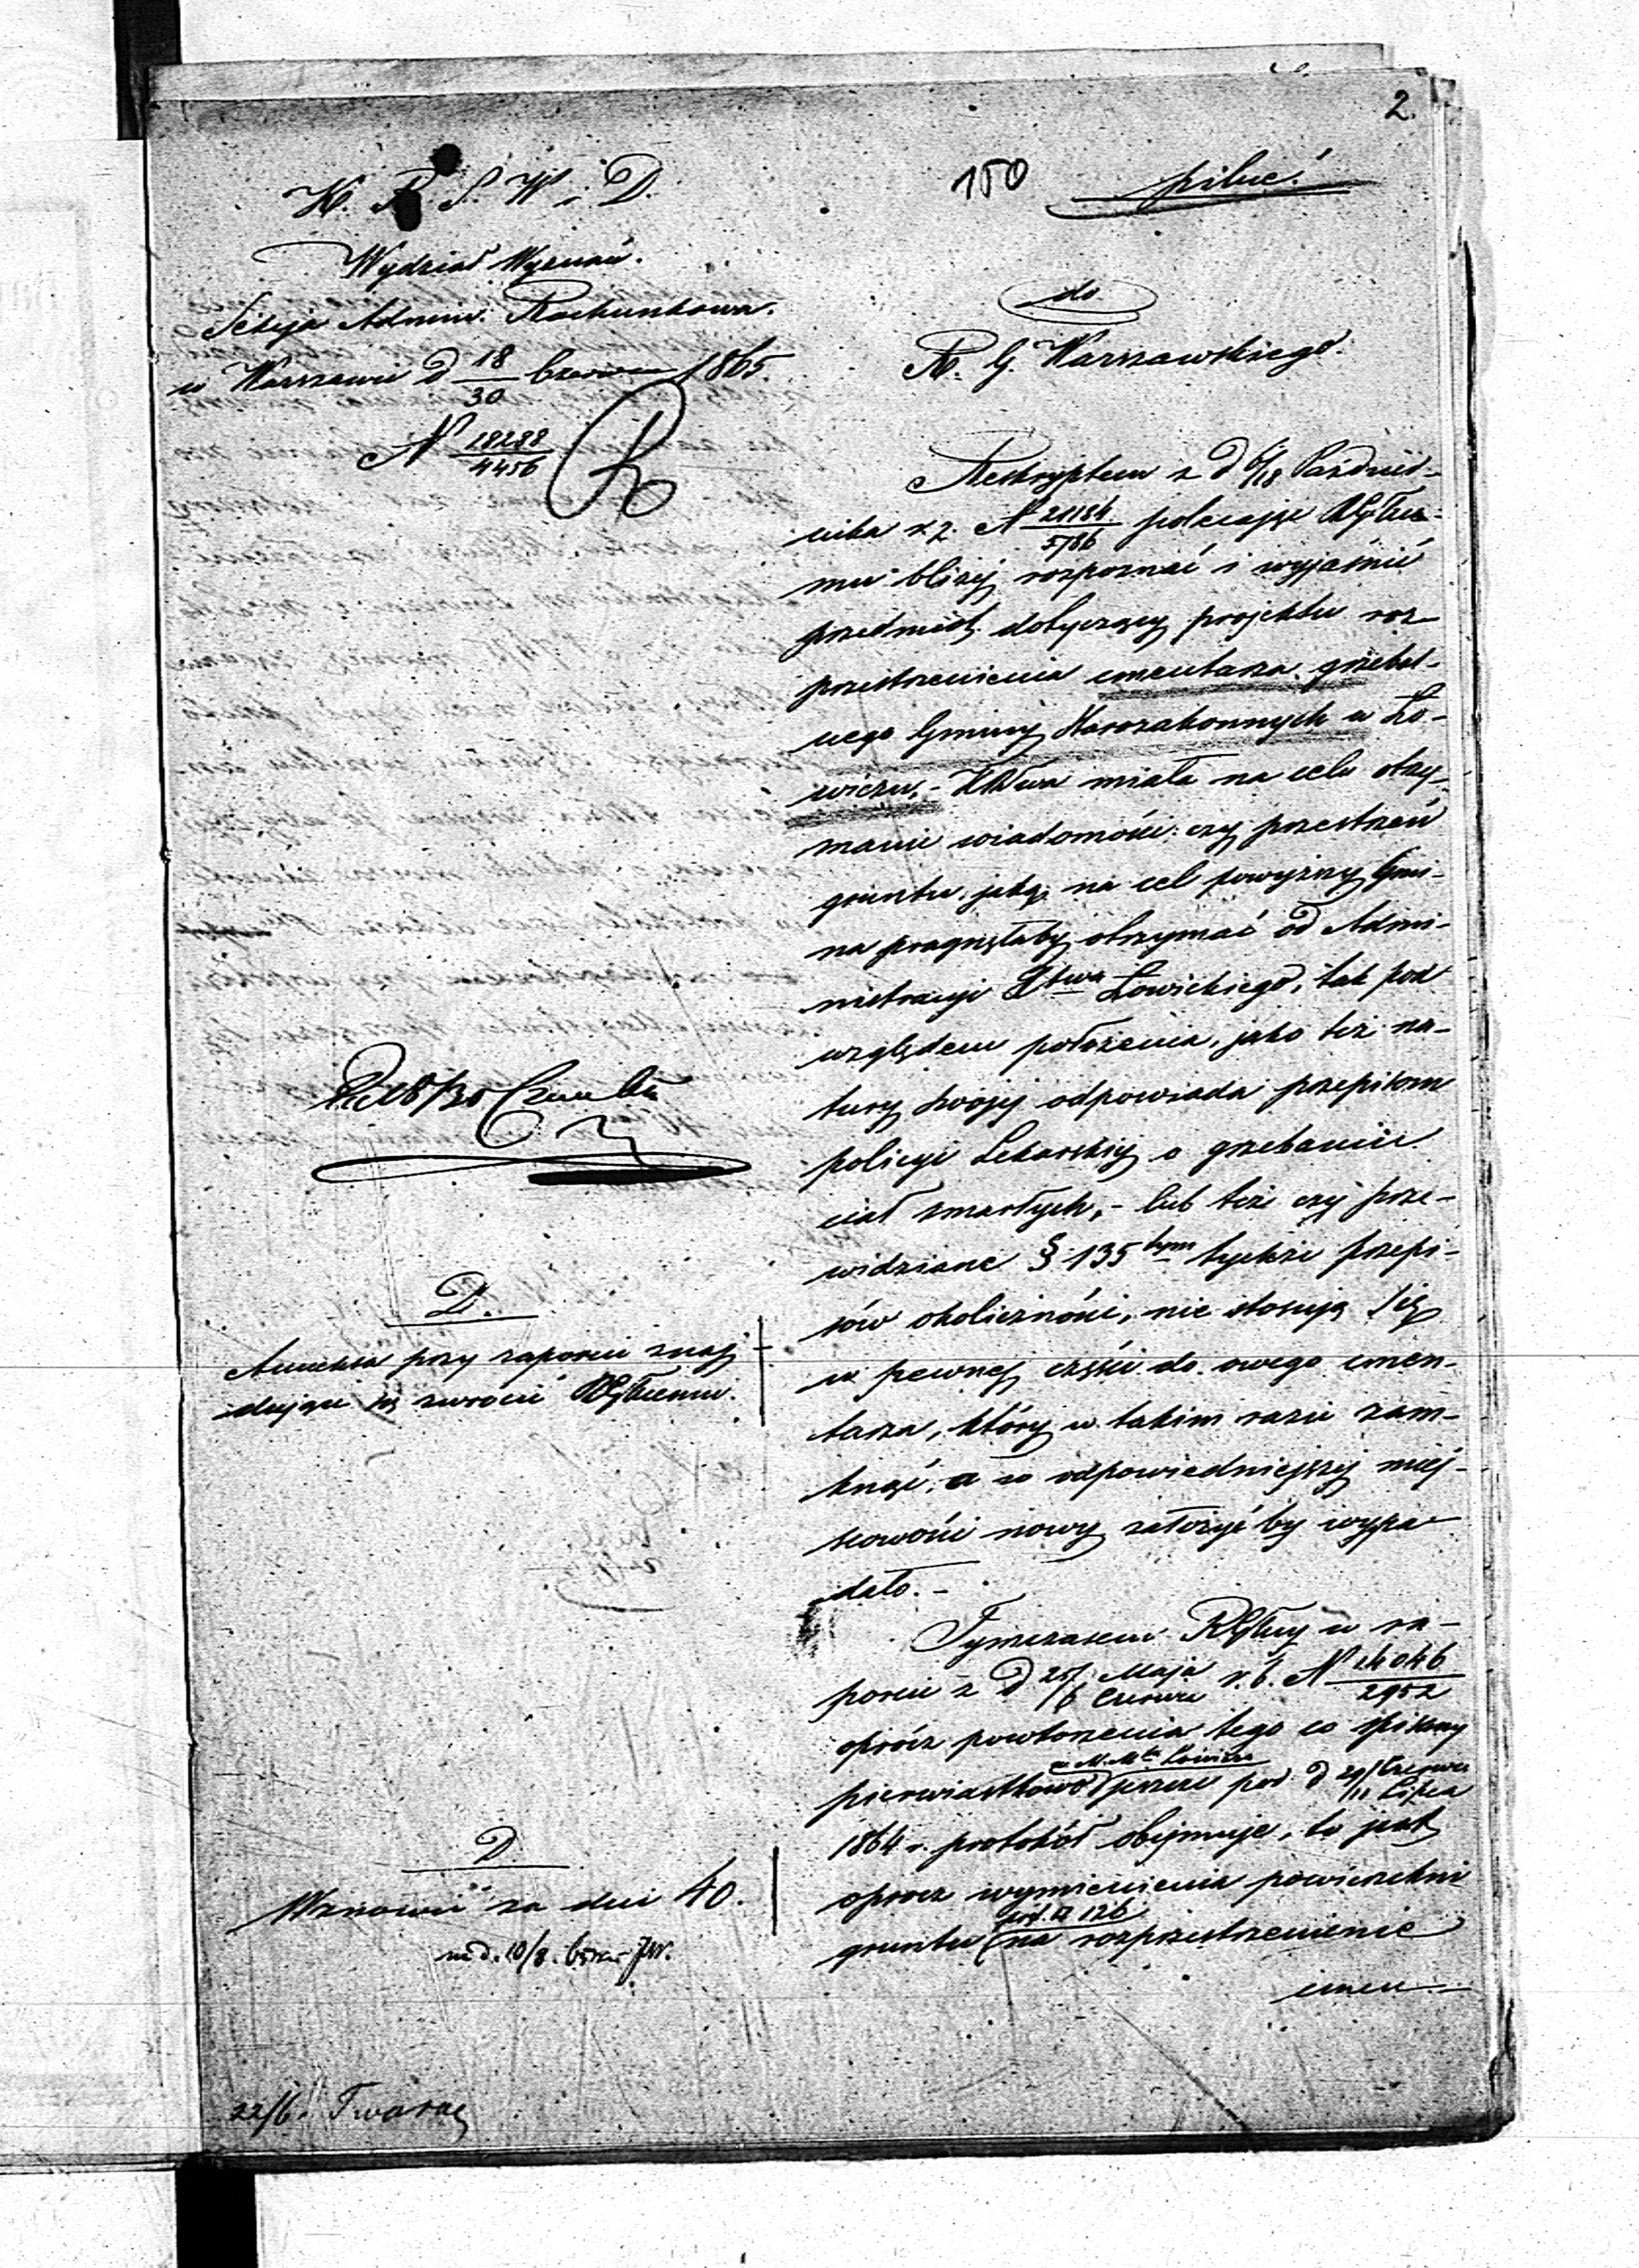 2.
150 pilne!
K. R. S. W. i D.
Wydział Wyznań.
Sekcja Admin. Rachunkowa.
w Warszawie d 18/30 Czerwca 1865.
N 28288/4456
do
R. G. Warszawskiego.
Reskryptem z d 6/18 Paździer-
nika z. r. N 21186/5786 polecając RGłu-
mu bliżej rozpoznać i wyjaśnić
przedmiot dotyczący projektu roz-
przestrzenienia cmentarza grzebal-
nego Gminy Starozakonnych w Ło-
wiczu,- KRwa miała na celu otrzy-
manie wiadomości: czy przestrzeń
gruntu, jaką na cel powyższy Gmi-
na pragnęłaby otrzymać od Admi-
nistracyi Xtwa Łowickiego, tak pod
względem położenia, jako też na-
tury swojej odpowiada przepisom
policyi Lekarskiej o grzebaniu
ciał zmarłych,- lub też czy prze-
widziane § 135tym tychże przepi-
sów okoliczności, nie stosują się
w pewnej części do owego cmen-
tarza, który w takim razie zam-
knąć, a w odpowiedniejszej miej-
scowości nowy założyć by wypa-
dało.-
Tymczasem RGłny w ra-
porcie z d 25/6 Maja/Czerwca r. b. N 14046/2952
oprócz powtórzenia tego co spisany
w M. Mcie Łowiczu
pierwiastkowo jeszcze pod d 29/11 Czerwca/Lipca
1864 r. protokół obejmuje, to jest
oprócz wymienienia powierzchni
gruntu na rozprzestrzenienie
cmen-
D.
Annexa przy raporcie znaj-
dujące się zwrócić RGłnemu.
D.
Wznowić za dni 40.
22/6.